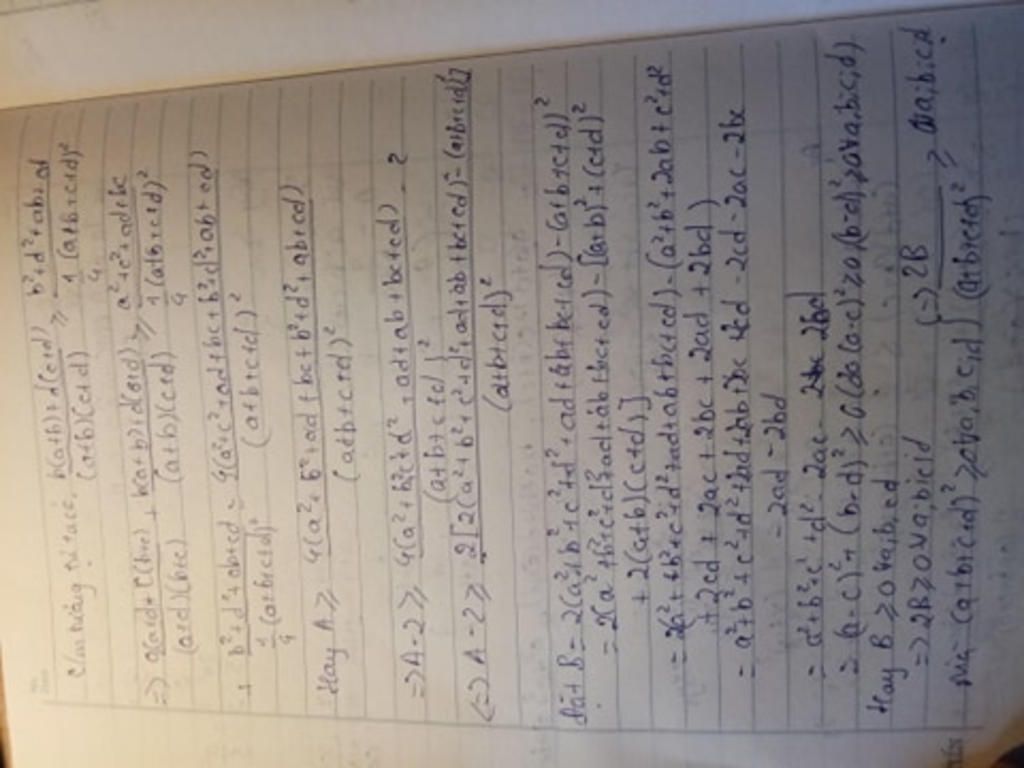 Chứng tỏ ta có: b(a+b)+d(c+d) / (a+b)(c+d) ≥ b²+d²+ab+cd / ¼(a+b+c+d)²
=> a(a+d)+c(b+c) / (a+d)(b+c) + b(a+b)+d(c+d) / (a+b)(c+d) ≥ a²+c²+ad+bc / ¼(a+b+c+d)²
+ b²+d²+ab+cd / ¼(a+b+c+d)² = 4(a²+c²+ad+bc+b²+d²+ab+cd) / (a+b+c+d)²
Hay A ≥ 4(a²+b²+ad+bc+b²+d²+ab+cd) / (a+b+c+d)²
=> A-2 ≥ 4(a²+b²+c²+d²+ad+ab+bc+cd) / (a+b+c+d)² - 2
<=> A-2 ≥ 2[2(a²+b²+c²+d²+ad+ab+bc+cd)-(a+b+c+d)²] / (a+b+c+d)²
Đặt B = 2(a²+b²+c²+d²+ad+ab+bc+cd)-(a+b+c+d)²
= 2(a²+b²+c²+d²+ad+ab+bc+cd)-[(a+b)²+(c+d)²
+2(a+b)(c+d)]
= 2(a²+b²+c²+d²+ad+ab+bc+cd)-(a²+b²+2ab+c²+d²
+2cd+2ac+2bc+2ad+2bd)
= a²+b²+c²+d²+2ad+2ab+2bc+2cd-2cd-2ac-2bc
-2ad-2bd
= a²+b²+c²+d²-2ac-2bd
= (a-c)²+(b-d)² ≥ 0 (do (a-c)² ≥ 0, (b-d)² ≥ 0 ∀ a,b,c,d)
Hay B ≥ 0 ∀ a,b,c,d
=> 2B ≥ 0 ∀ a;b;c;d
mà (a+b+c+d)² ≥ 0 ∀ a,b,c,d } => 2B / (a+b+c+d)² ≥ 0 ∀ a;b;c;d